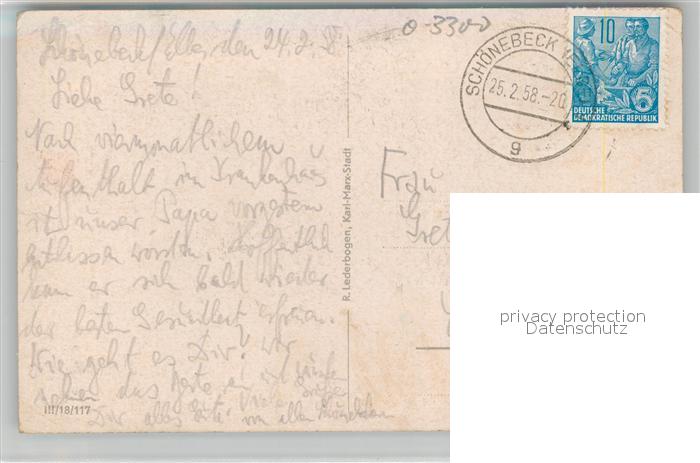 Schönebeck/Elbe, den 24.2.58
Liebe Grete!
Nach viermonatlichem
Aufenthalt im Krankenhaus
ist unser Papa vorgestern
entlassen worden. Hoffentlich
kann er sich bald wieder
der besten Gesundheit erfreuen.
Wie geht es Dir? Wir
nehmen das beste an und
Dir alles Gute! Viele Grüße
von allen
III/18/117
R. Lederbogen, Karl-Marx-Stadt
0-3300
SCHÖNEBECK
25.2.58.-20
g
10
5
DEUTSCHE
DEMOKRATISCHE REPUBLIK
Frau
privacy protection
Datenschutz